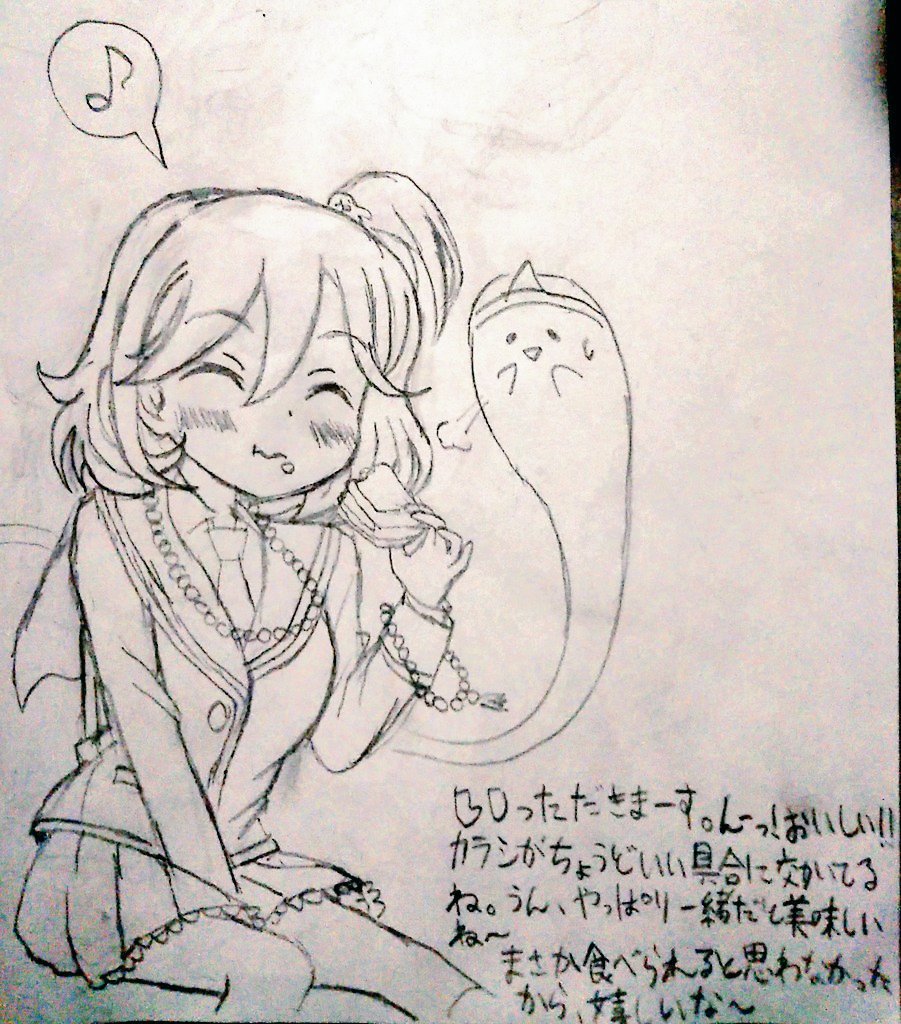 いっただきまーす。んーっ!おいしい!!
カラシがちょうどいい具合に効いてる
ね。うん、やっぱり一緒だと美味しい
ね〜
まさか食べられると思わなかった
から、嬉しいな〜